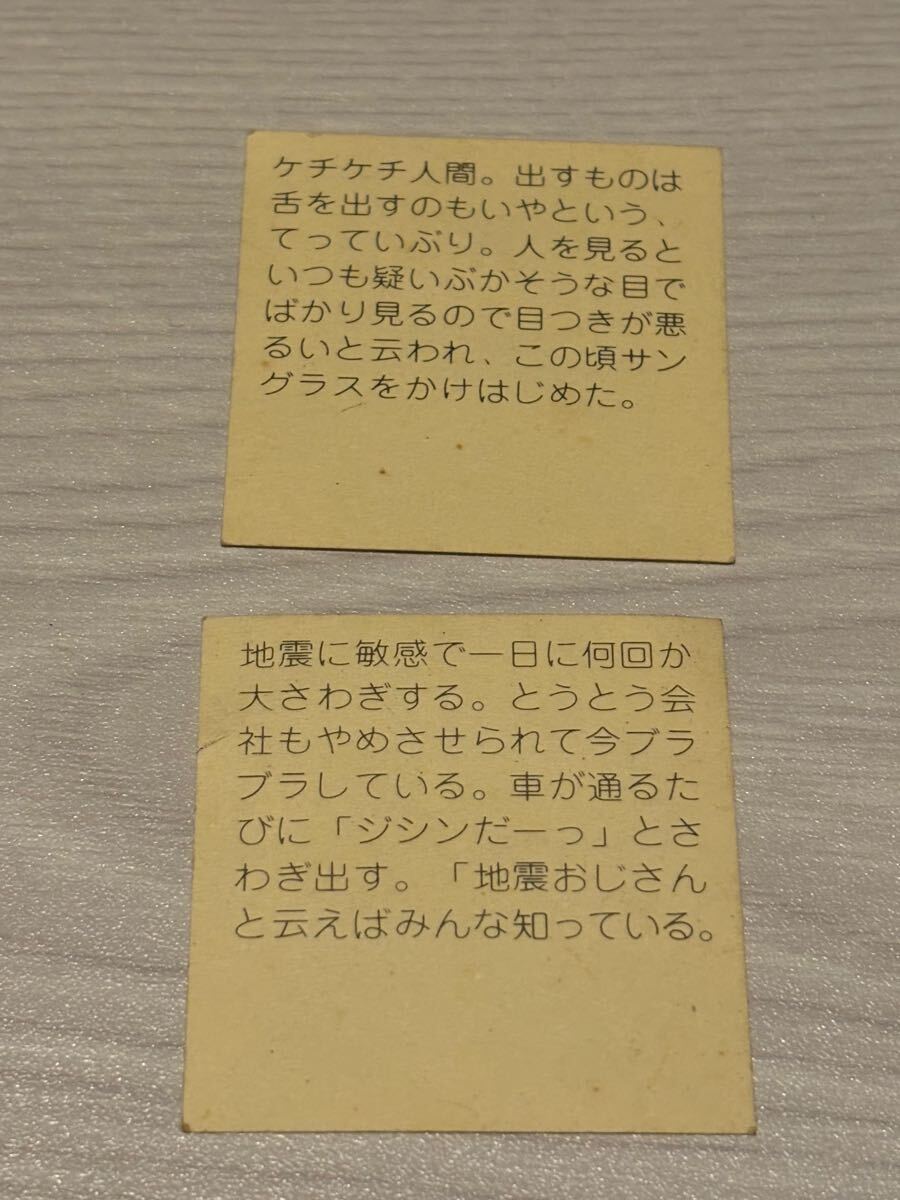 ケチケチ人間。出すものは
舌を出すのもいやという、
てっていぶり。人を見ると
いつも疑いぶかそうな目で
ばかり見るので目つきが悪
るいと云われ、この頃サン
グラスをかけはじめた。
地震に敏感で一日に何回か
大さわぎする。とうとう会
社もやめさせられて今ブラ
ブラしている。車が通るた
びに「ジシンだーっ」とさ
わぎ出す。「地震おじさん
と云えばみんな知っている。